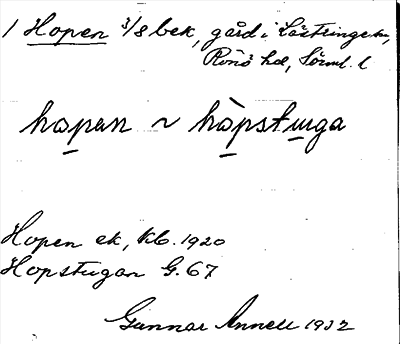 1 Hopen 3/8 bek, gård i Lästringe sn,
Rönö hd, Sörml. l
hopen ~ hòpstuga
Hopen ek, Kb. 1920
Hopstugan G. 67
Gunnar Annell 1932